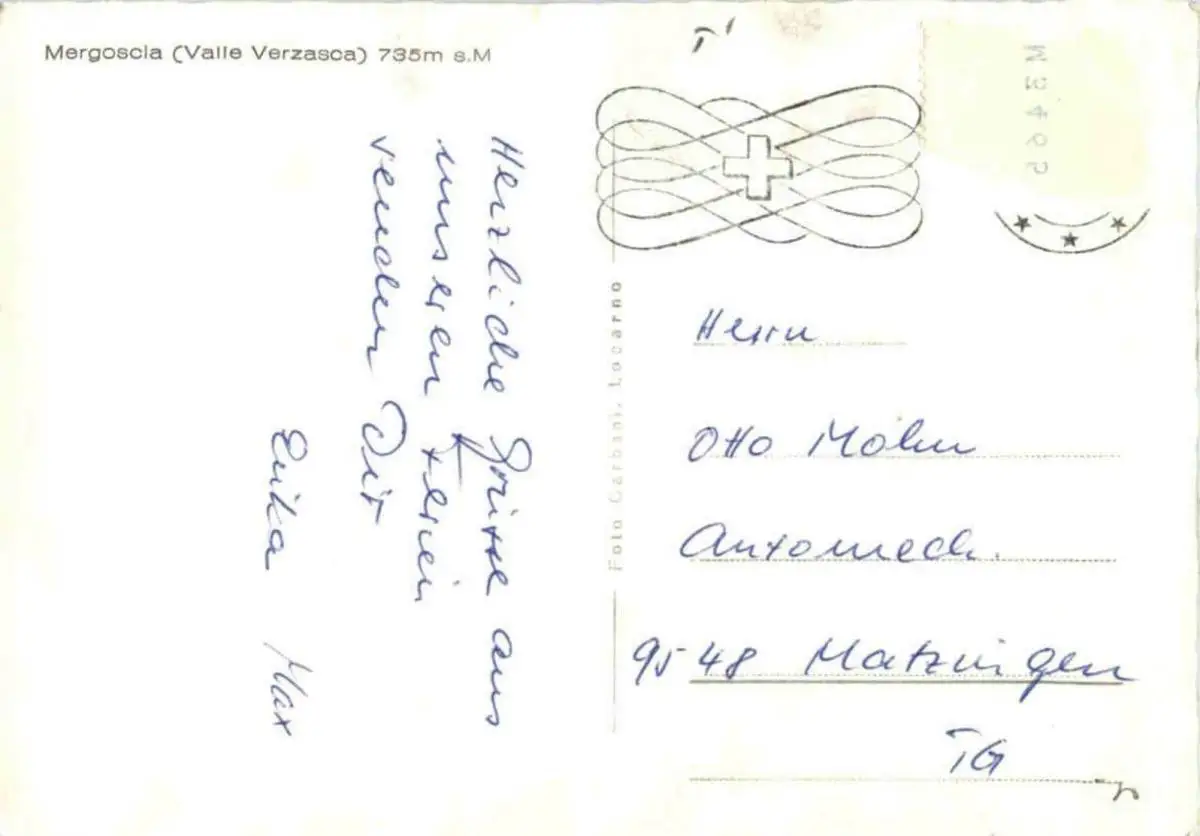 Mergoscia (Valle Verzasca) 735m s.M
Herzliche Grüsse aus
unseren Ferien
senden Dir
Erika Max
Foto Garbani, Locarno
M3465
Herrn
Otto
Automech.
9548 Matzingen
TG